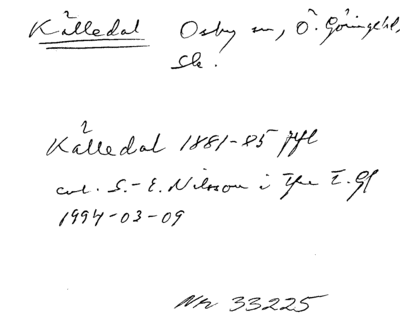 Källedal Osby sn, Ö. Göinge hd,
Sk.
Källedal 1881-85 jfl
enl. S.-E. Nilsson i
1994-03-09
Nr 33225